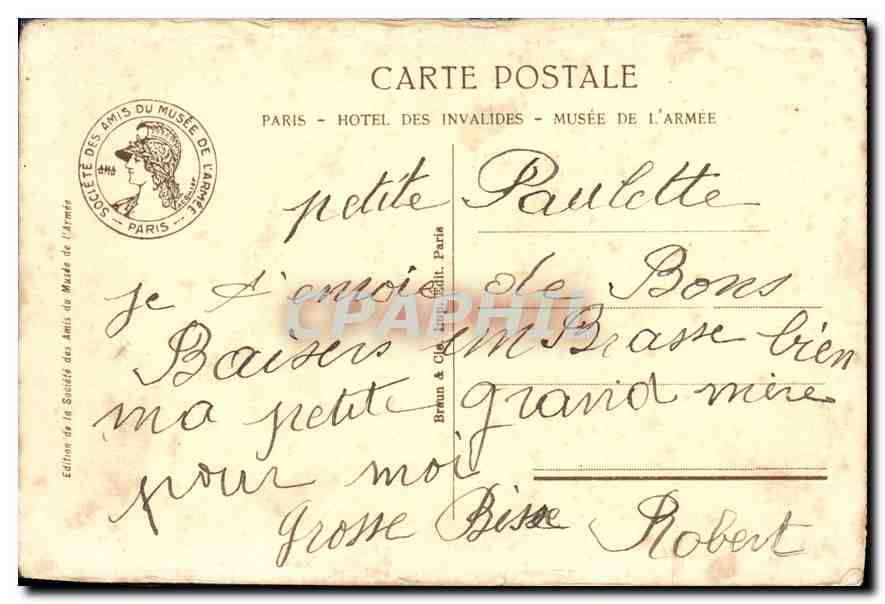 CARTE POSTALE
PARIS - HOTEL DES INVALIDES - MUSÉE DE L'ARMÉE
SOCIÉTÉ DES AMIS DU MUSÉE DE L'ARMÉE
— PARIS —
Edition de la Société des Amis du Musée de l'Armée
Braun & Cie Imp. Edit. Paris
petite Paulette
je t'envoie de Bons
Baisers em Brasse bien
ma petite grand mère
pour moi
grosse Bise Robert
CPAPHIL